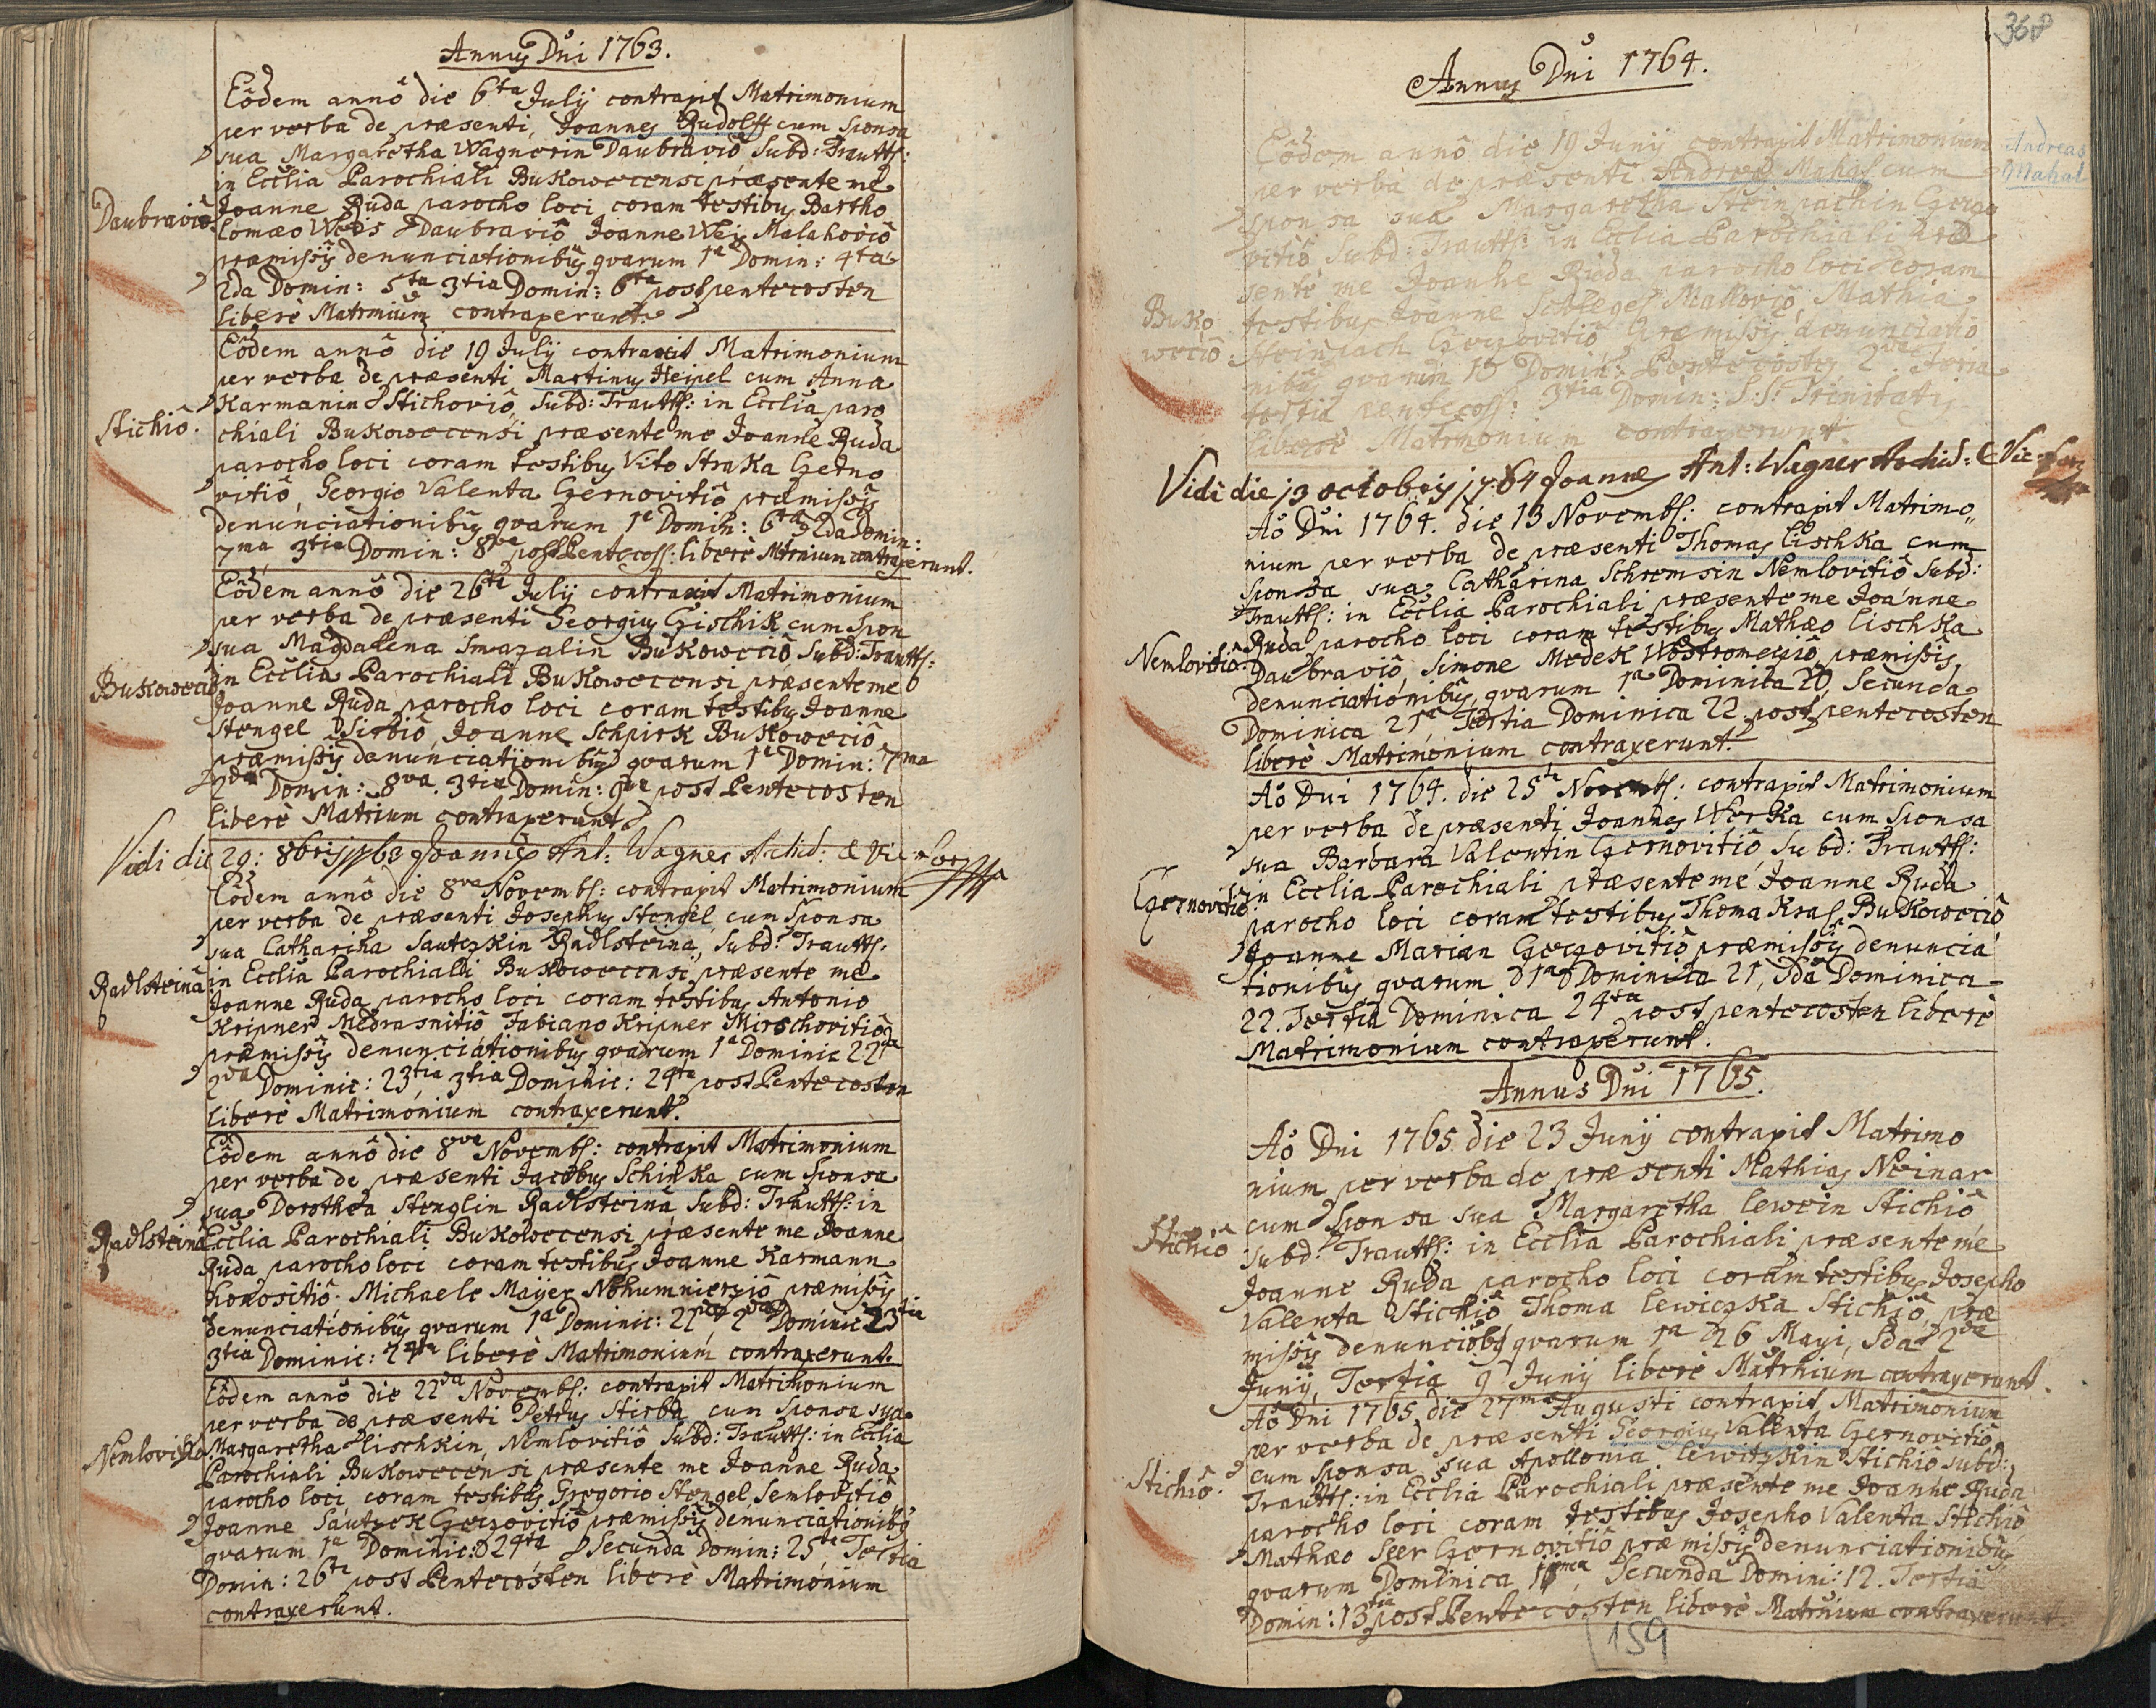 Annus Dni 1763.
Eôdem annô die 6ta July contraxit Matrimonium
per verba de præsenti, Joannes Rudolff cum sponsa
sua Margaretha Wagnerin Daubraviô Subd: Trautts:
in Ecclia Parochiali Bukowocensi præsente me
Daubraviô.
Joanne Ruda parocho loci coram testibus Bartho
lomæo Weis Daubraviô Joanne Weis Malahoviô
præmissis denunciationibus qvarum 1a Domin: 4ta
2da Domin: 5ta 3tia Domin: 6ta post pentecosten
liberè Matrmium contraxerunt.
Eôdem annô die 19 July contraxit Matrimonium
per verba de præsenti Martinus Heipel cum Anna
Karmanin Stichoviô, Subd: Trautts: in Ecclia paro
Stichiô.
chiali Bukowocensi præsente me Joanne Ruda
parocho loci coram testibus Vito Straka Czerno
vitiô, Georgio Valenta Czernovitiô, præmissis
denunciationibus qvarum 1a Domin: 6ta 2da Domin:
7ma 3tia Domin: 8va post Pentecost: liberè Mtrnium contraxerunt.
Eôdem annô die 26ta July contraxit Matrimonium
per verba de præsenti Georgius Gischik cum spon
sua Magdalena Smazalin Bukowociô Subd: Trautts:
Bukowociô
in Ecclia Parochiali Bukowocensi præsente me
Joanne Ruda parocho loci coram testibus Joanne
Stengel Sirbiô, Joanne Schpirk Bukowociô
præmissis denunciationibus qvarum 1a Domin: 7ma
2da Domin: 8va. 3tia Domin: 9va post Pentecosten
liberè Matrium contraxerunt.
Vidi die 29: 8bris 1763 Joannes Ant: Wagner Archid: & Vic: For:
Eôdem annô die 8va Novembs: contraxit Matrimonium
per verba de præsenti Josephus Stengel cum Sponsa
sua Catharina Sautczkin Radlsteina, Subd: Trautts:
Radlsteina
in Ecclia Parochiali Bukowocensi præsente me
Joanne Ruda parocho loci coram testibus Antonio
Kripner Medrasnitiô Fabiano Kripner Mirschovitiô
præmissis denunciationibus qvarum 1a Dominic 22da
2da Dominic: 23tia 3tia Dominic: 24ta post Pentecosten
liberè Matrimonium contraxerunt.
Eôdem annô die 8va Novembs: contraxit Matrimonium
per verba de præsenti Jacobus Schipka cum sponsa
sua Dorothea Stenglin Radlsteina Subd: Trautts: in
Radlsteina
Ecclia Parochiali Bukowocensi præsente me Joanne
Ruda parocho loci coram testibus Joanne Karmann
Honositiô. Michaele Mayer Nohumnierziô præmissis
denunciationibus qvarum 1a Dominic: 22da 2da Dominic 23tia
3tia Dominic: 24ta liberè Matrimonium contraxerunt.
Eôdem annô die 22da Novembs: contraxit Matrimonium
per verba de præsenti Petrus Stirba cum Sponsa sua
Nemlovitiô
Margaretha Lischkin, Nemlovitiô Subd: Trautts: in Ecclia
Parochiali Bukowocensi præsente me Joanne Ruda
parocho loci coram testibus Gregorio Stengel Semlovitiô
Joanne Sautzek Czerzovitiô præmissis denunciationibus
qvarum 1a Dominic: 24ta Secunda Domin: 25ta Tertia
Domin: 26ta post Pentecosten liberè Matrimonium
contraxerunt.
368
Annus Dni 1764.
Eôdem annô die 19 Juny contraxit Matrimonium
Andreas
Mahal
per verba de præsenti Andreas Mahal cum
sponsa sua Margaretha Steinpachin Czerzo
vitiô Subd: Trautts: in Ecclia Parochiali præ
sente me Joanne Ruda parocho loci coram
Buko
wociô
testibus Joanne Schlegel Malloviô, Mathia
Steinpach Czerzovitiô præmissis denunciatio
nibus qvarum 1a Domin: Pentecostes 2da Feria
tertia pentecost: 3tia Domin: S.S. Trinitatis
liberè Matrmonium contraxerunt.
Vidi die 13 octobris 1764 Joannes Ant: Wagner Archid: & Vic: For:
Aô Dni 1764. die 13 Novembs: contraxit Matrimo
nium per verba de præsenti Thomas Lischka cum
sponsa sua Catharina Schremsin Nemlovitiô Subd:
Trautts: in Ecclia Parochiali præsente me Joanne
Nemlovitiô
Ruda parocho loci coram testibus Mathæo Lischka
Daubraviô, Simone Medek Wostromeziô præmissis
denunciationibus, qvarum 1a Dominica 20, Secunda
Dominica 21a, Tertia Dominica 22 post pentecosten
liberè Matrimonium contraxerunt.
Aô Dni 1764. die 25ta Novembs: contraxit Matrimonium
per verba de præsenti Joannes Worka cum sponsa
sua Barbara Valentin Czernovitiô, Subd: Trautts:
Czernovitiô
in Ecclia Parochiali præsente me Joanne Ruda
parocho loci coram testibus Thoma Kral Bukowociô
Joanne Marian Czerzovitiô præmissis denuncia
tionibus qvarum 1a Dominica 21, 2da Dominica
22. Tertia Dominica 24ta post pentecosten liberè
Matrimonium contraxerunt.
Annus Dni 1765.
Aô Dni 1765 die 23 Juny contraxit Matrimo
nium per verba de præsenti Mathias Neinar
Stichiô
cum Sponsa sua Margaretha Lewein Stichiô
subd: Trautts: in Ecclia Parochiali præsente me
Joanne Ruda parocho loci coram testibus Josepho
Valenta Stichiô Thoma Lewiczka Stichiô, præ
missis denunciõbus qvarum 1a 26 Mayi, 2da 2da
Juny, Tertia 9 Juny liberè Matrnium contraxerunt.
Aô Dni 1765 die 27ma Augusti contraxit Matrimonium
per verba de præsenti Georgius Valenta Czernovitiô,
Stichiô.
cum Sponsa sua Apollonia Lewitzkin Stichiô subd:
Trautts: in Ecclia Parochiali præsente me Joanne Ruda
parocho loci coram testibus Josepho Valenta Stichiô
Mathæo Seer Czernovitiô præmissis denunciationibus
qvarum Dominica 11ma, Secunda Domin: 12. Tertia
Domin: 13tia post Pentecosten liberè Matrnium contraxerunt.
159